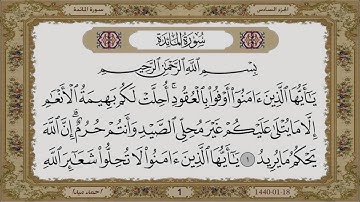 الجزء السادس
سورة المائدة
سُورَةُ المَائِدَةِ
بِسْمِ ٱللَّهِ ٱلرَّحْمَٰنِ ٱلرَّحِيمِ
يَٰٓأَيُّهَا ٱلَّذِينَ ءَامَنُوٓا۟ أَوْفُوا۟ بِٱلْعُقُودِ ۚ أُحِلَّتْ لَكُم بَهِيمَةُ ٱلْأَنْعَٰمِ
إِلَّا مَا يُتْلَىٰ عَلَيْكُمْ غَيْرَ مُحِلِّى ٱلصَّيْدِ وَأَنتُمْ حُرُمٌ ۗ إِنَّ ٱللَّهَ
يَحْكُمُ مَا يُرِيدُ ١ يَٰٓأَيُّهَا ٱلَّذِينَ ءَامَنُوا۟ لَا تُحِلُّوا۟ شَعَٰٓئِرَ ٱللَّهِ
1440-01-18
1
احمد